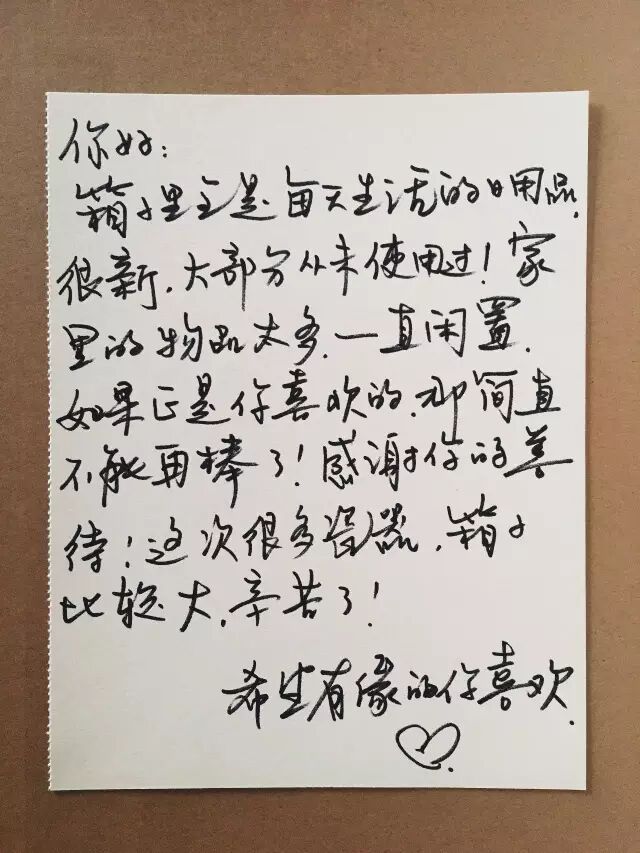 你好：
箱子里主是每天生活的日用品，
很新，大部分从未使用过！家
里的物品太多，一直闲置，
如果正是你喜欢的，那简直
不能再棒了！感谢你的善
待！这次很多瓷器，箱子
比较大，辛苦了！
希望有缘的你喜欢，